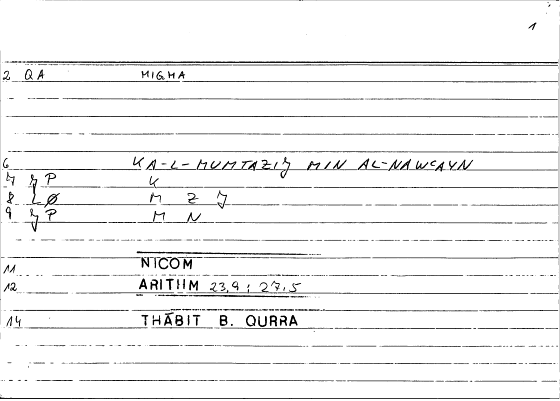 1
2 QA MIGMA
6 KA-L-MUMTAZIJ MIN AL-NAWCAYN
7 JP K
8 LØ M Z J
9 JP M N
11 NICOM
12 ARITIIM 23,9 ; 27,5
14 THĀBIT B. QURRA